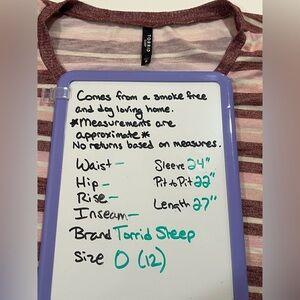 TORRID
Comes from a smoke free
and dog loving home.
*Measurements are
approximate*
No returns based on measures.
Waist -
Hip -
Rise -
Inseam -
Sleeve 24"
Pit to Pit 22"
Length 27"
Brand Torrid Sleep
Size 0 (12)